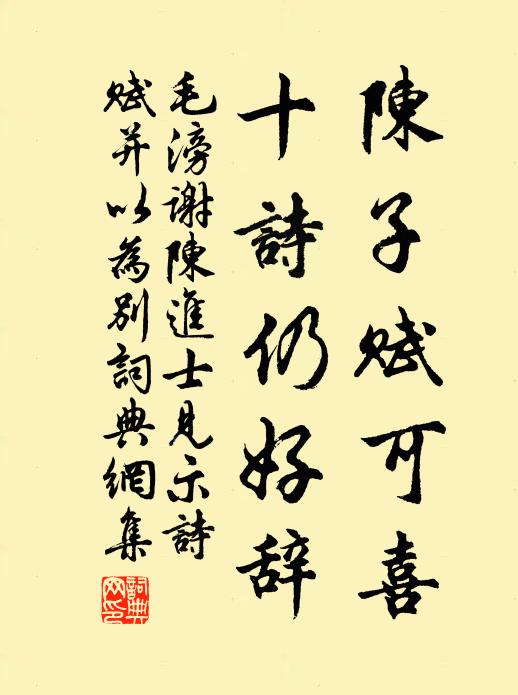 陳子赋可喜
十詩仍好辞
毛滂謝陳進士見示詩
赋并以為别詞典網集